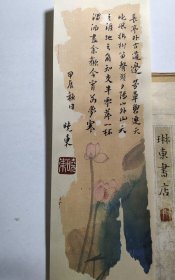 長亭外古道邊芳草碧連天
晚風拂柳笛聲殘夕陽山外山天
之涯地之角知交半零落一杯
濁酒盡餘歡今宵別夢寒
甲辰秋日 曉東
琳東書店